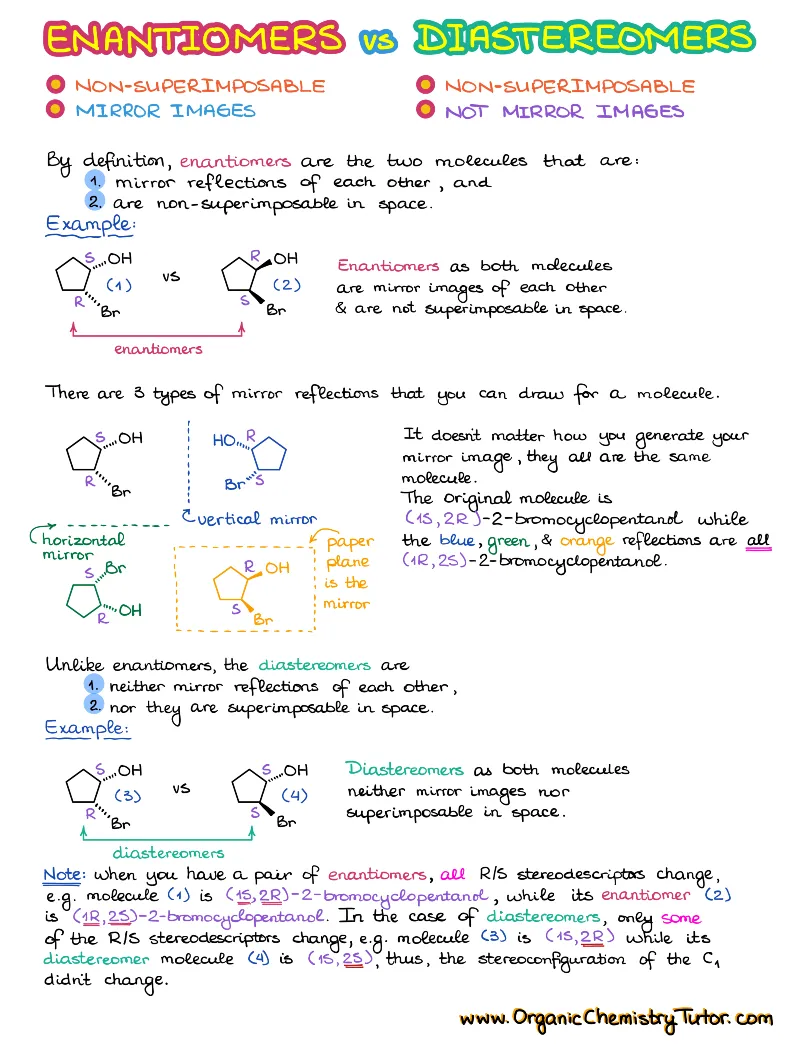 ENANTIOMERS vs DIASTEREOMERS
NON-SUPERIMPOSABLE
MIRROR IMAGES
NON-SUPERIMPOSABLE
NOT MIRROR IMAGES
By definition, enantiomers are the two molecules that are:
1. mirror reflections of each other, and
2. are non-superimposable in space.
Example:
S OH
(1)
R
Br
vs
R OH
(2)
S
Br
enantiomers
Enantiomers as both molecules
are mirror images of each other
& are not superimposable in space.
There are 3 types of mirror reflections that you can draw for a molecule.
S OH
R
Br
HO R
Br S
vertical mirror
horizontal
mirror
S Br
OH
R
R OH
S
Br
paper
plane
is the
mirror
It doesn't matter how you generate your
mirror image, they all are the same
molecule.
The original molecule is
(1S, 2R)-2-bromocyclopentanol while
the blue, green, & orange reflections are all
(1R, 2S)-2-bromocyclopentanol.
Unlike enantiomers, the diastereomers are
1. neither mirror reflections of each other,
2. nor they are superimposable in space.
Example:
S OH
(3)
R
Br
vs
S OH
(4)
S
Br
diastereomers
Diastereomers as both molecules
neither mirror images nor
superimposable in space.
Note: when you have a pair of enantiomers, all R/S stereodescriptors change,
e.g. molecule (1) is (1S, 2R)-2-bromocyclopentanol, while its enantiomer (2)
is (1R, 2S)-2-bromocyclopentanol. In the case of diastereomers, only some
of the R/S stereodescriptors change, e.g. molecule (3) is (1S, 2R) while its
diastereomer molecule (4) is (1S, 2S), thus, the stereoconfiguration of the C1
didn't change.
www.OrganicChemistryTutor.com